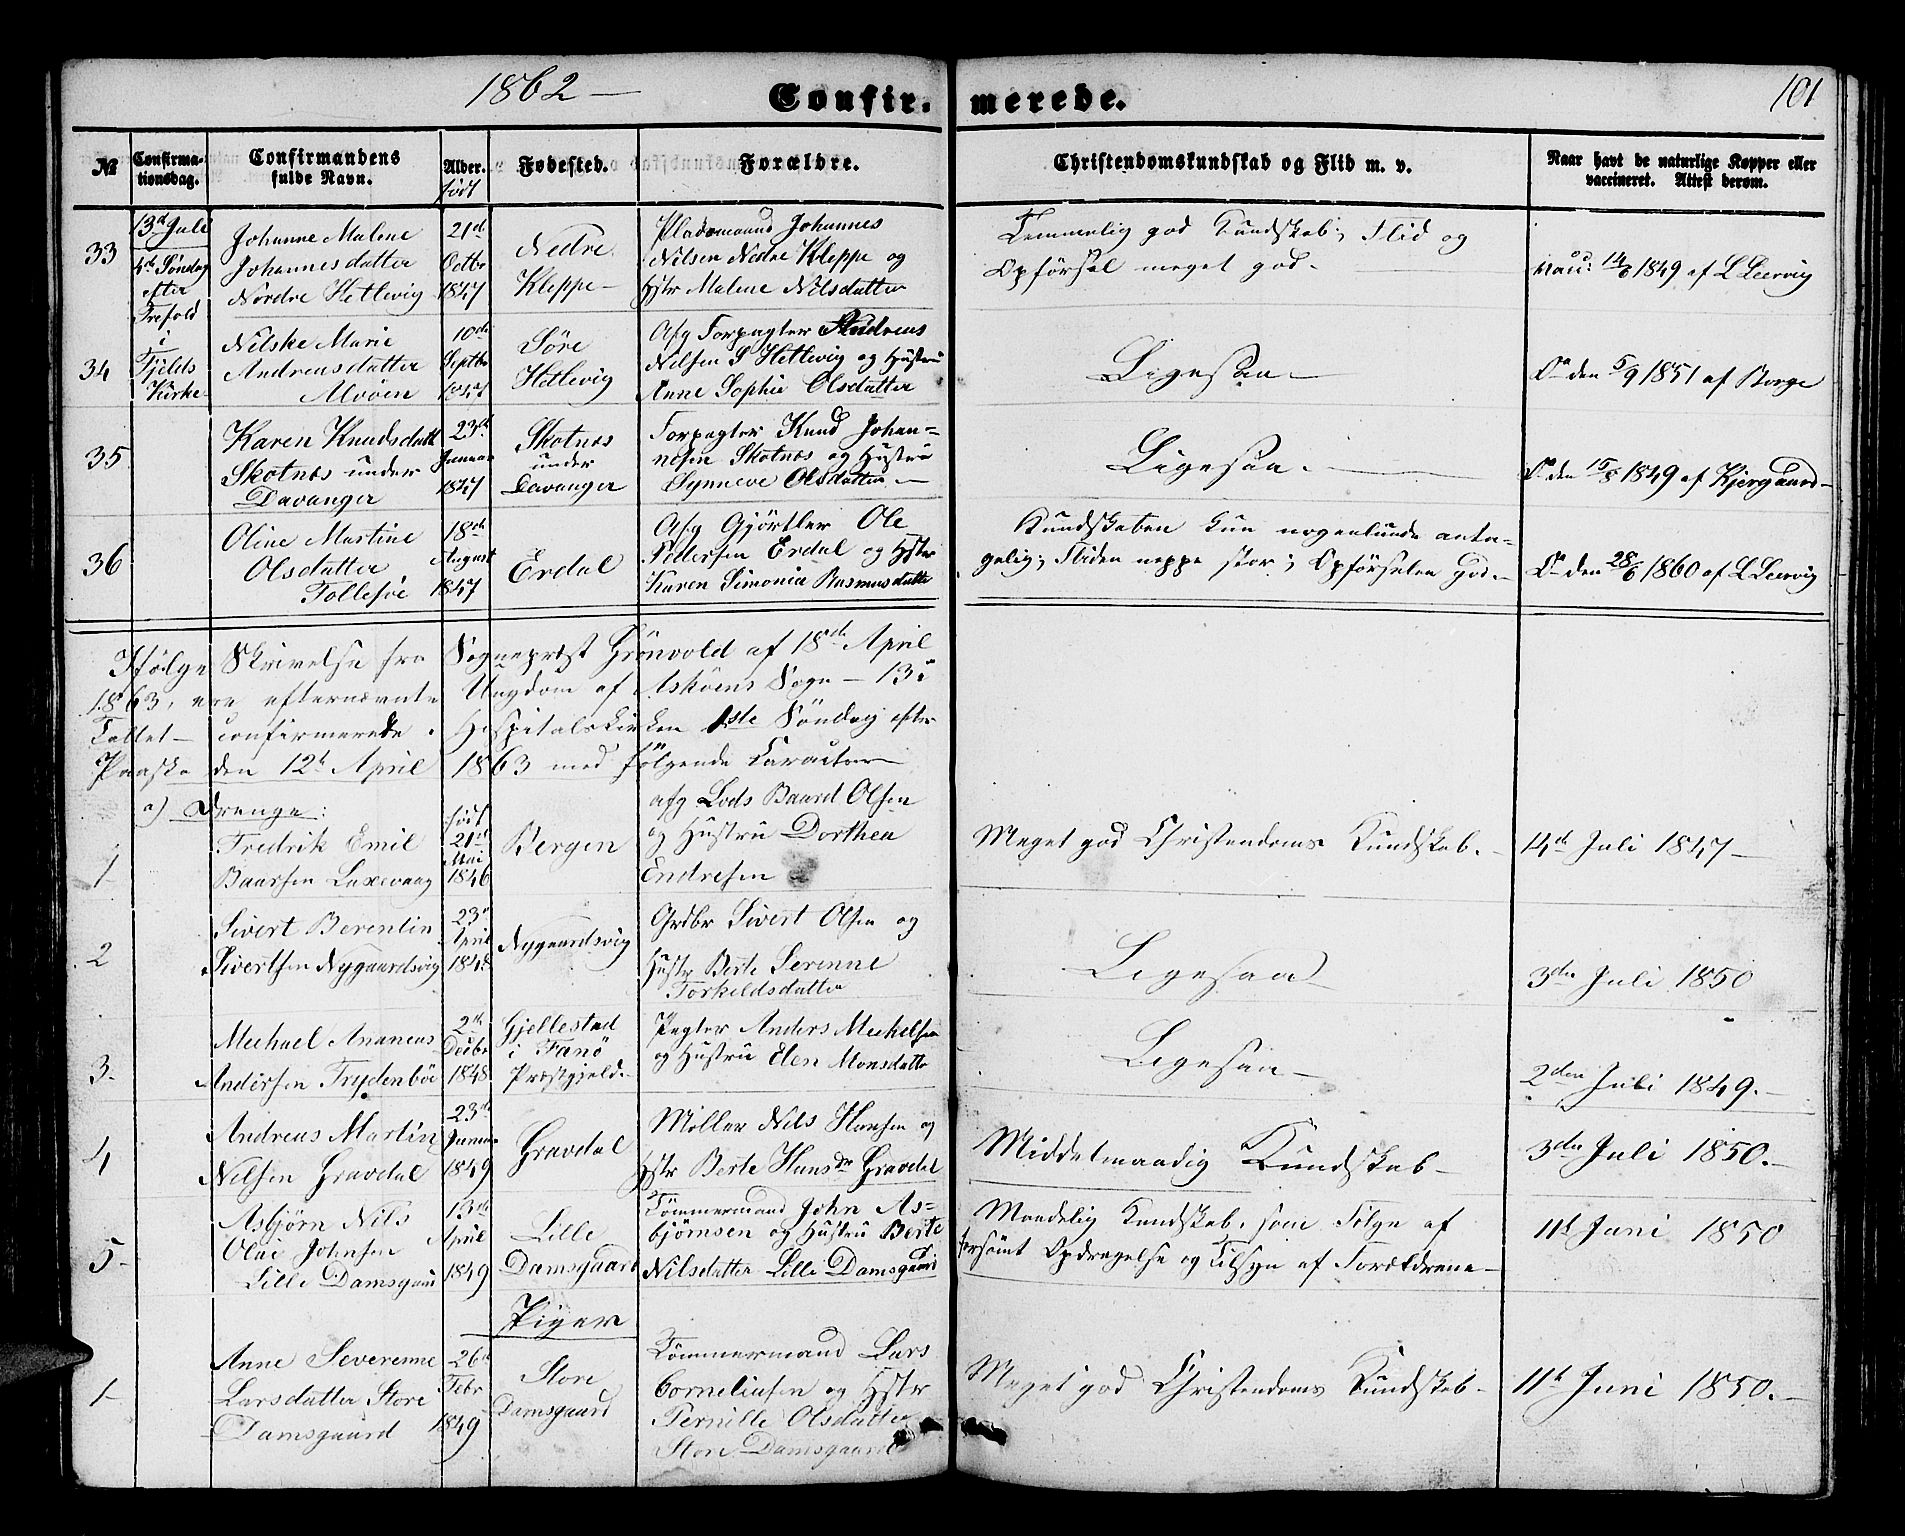 1862 —
Confir. merede.
101
№
Confirma-
tionsdag.
Confirmandens
fulde Navn.
Alder.
født
Fødested.
Forældre.
Christendomskundskab og Flid m. v.
Naar havt de naturlige Kopper eller
vaccineret. Attest derom.
33
13d Juli
4de Søndag
efter
Trefold
i
Fjelds
Kirke
Johanne Malene
Johannesdatter
Nordre Hetlevig
21de
Octbr
1847
Nedre
Kleppe —
Pladsmand Johannes
Nilsen Nedre Kleppe og
Hstr Malene Nilsdatter
Temmelig god Kundskab; Flid og
Opførsel meget god.
14/6 1849 af L Leervig
34
Nilske Marie
Andreasdatter
Alvøen
10de
Septbr
1847
Søre
Hetlevig
Afg Forpagter Andreas
Nilsen S Hetlevig og Hustru
Anne Sophie Olsdatter
Ligesaa —
Do den 5/9 1851 af Borge
35
Karen Knudsdatt
Skotnæs under
Davanger
23de
Januar
1847
Skotnæs
under
Davanger
Forpagter Knud Johan=
nesen Skotnæs og Hustru
Synneve Olsdatter —
Ligesaa. —
Do den 15/8 1849 af Kjergaard —
36
Oline Martine
Olsdatter
Follesøe
18de
August
1847
Erdal
Afg Gjørtler Ole
Pedersen Erdal og Hstr
Karen Simonia Rasmusdatte
Kundskaben kun nogenlunde anta-
gelig; Fliden neppe stor; Opførselen god. —
Do den 28/6 1860 af L Leervig
Ifølge Skrivelse fra Sognepræst Grønvold af 18de April
1863, ere efternævnte Ungdom af Askøens Sogn — 13 i
Tallet — confirmerede i Hospitalskirken 1ste Søndag efter
Paaske den 12te April 1863 med følgende Caracter —
a) Drenge:
1
Fredrik Emil
Baarsen Laxevaag
født
21de
Mai
1846
Bergen
afg Lods Baard Olsen
og Hustru Dorthea
Endresen
Meget god Christendoms Kundskab. —
14de Juli 1847 —
2
Sivert Berentin
Sivertsen Nygaardsvig
23de
April
1848
Nygaardsvig
Grdbr Sivert Olsen og
Hustr Berte Serenne
Torkeldsdatter
Ligesaa
3de Juli 1850
3.
Mechael Ananeas
Andersen Frydenbøe
2de
Decbr
1848
Gjellestad
i Fanø
Præstgjeld.
Pagter Anders Mechelsen
og Hustru Elen Monsdatte
Ligesaa —
2den Juli 1849. —
4
Andreas Martin
Nilsen Gravdal
23de
Januar
1849
Gravdal
Møller Nils Hansen og
Hstr Berte Hansdr Gravdal
Middelmaadig Kundskab —
3de Juli 1850. —
5
Asbjørn Nils
Olai Johnsen
Lille Damsgaard
13de
April
1849
Lille
Damsgaard
Tømmermand John As=
bjørnsen og Hustru Berte
Nilsdatter Lille Damsgaard
Maadelig Kundskab, som Følge af
forsømt Opdragelse og Tilsyn af Forældrene —
11te Juni 1850
Piger
1
Anne Severenne
Larsdatter Store
Damsgaard
26de
Febr
1849
Store
Damsgaard
Tømmermand Lars
Corneliusen og Hstr
Pernille Olsdatter
Store Damsgaard
Meget god Christendoms Kundskab —
11te Juni 1850. —